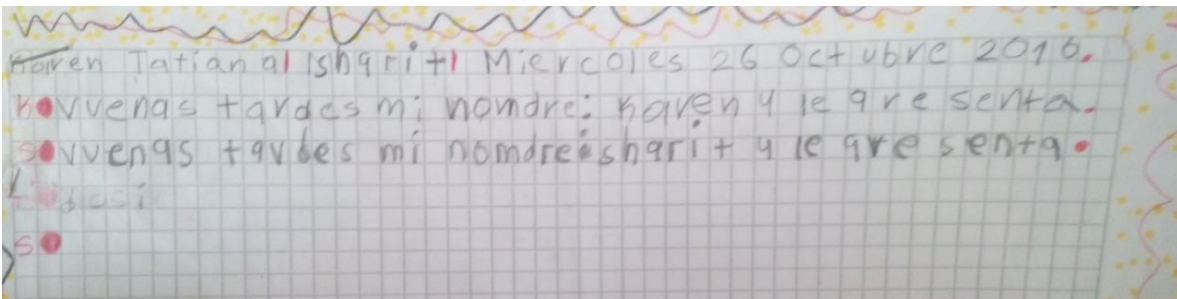 Karen Tatiana | Sharit | Miercoles 26 Octubre 2016.
K● vvenas tardes mi nomdre: Karen y le are senta.
S● vvenas tardes mi nomdre: sharit y le are senta.
S●